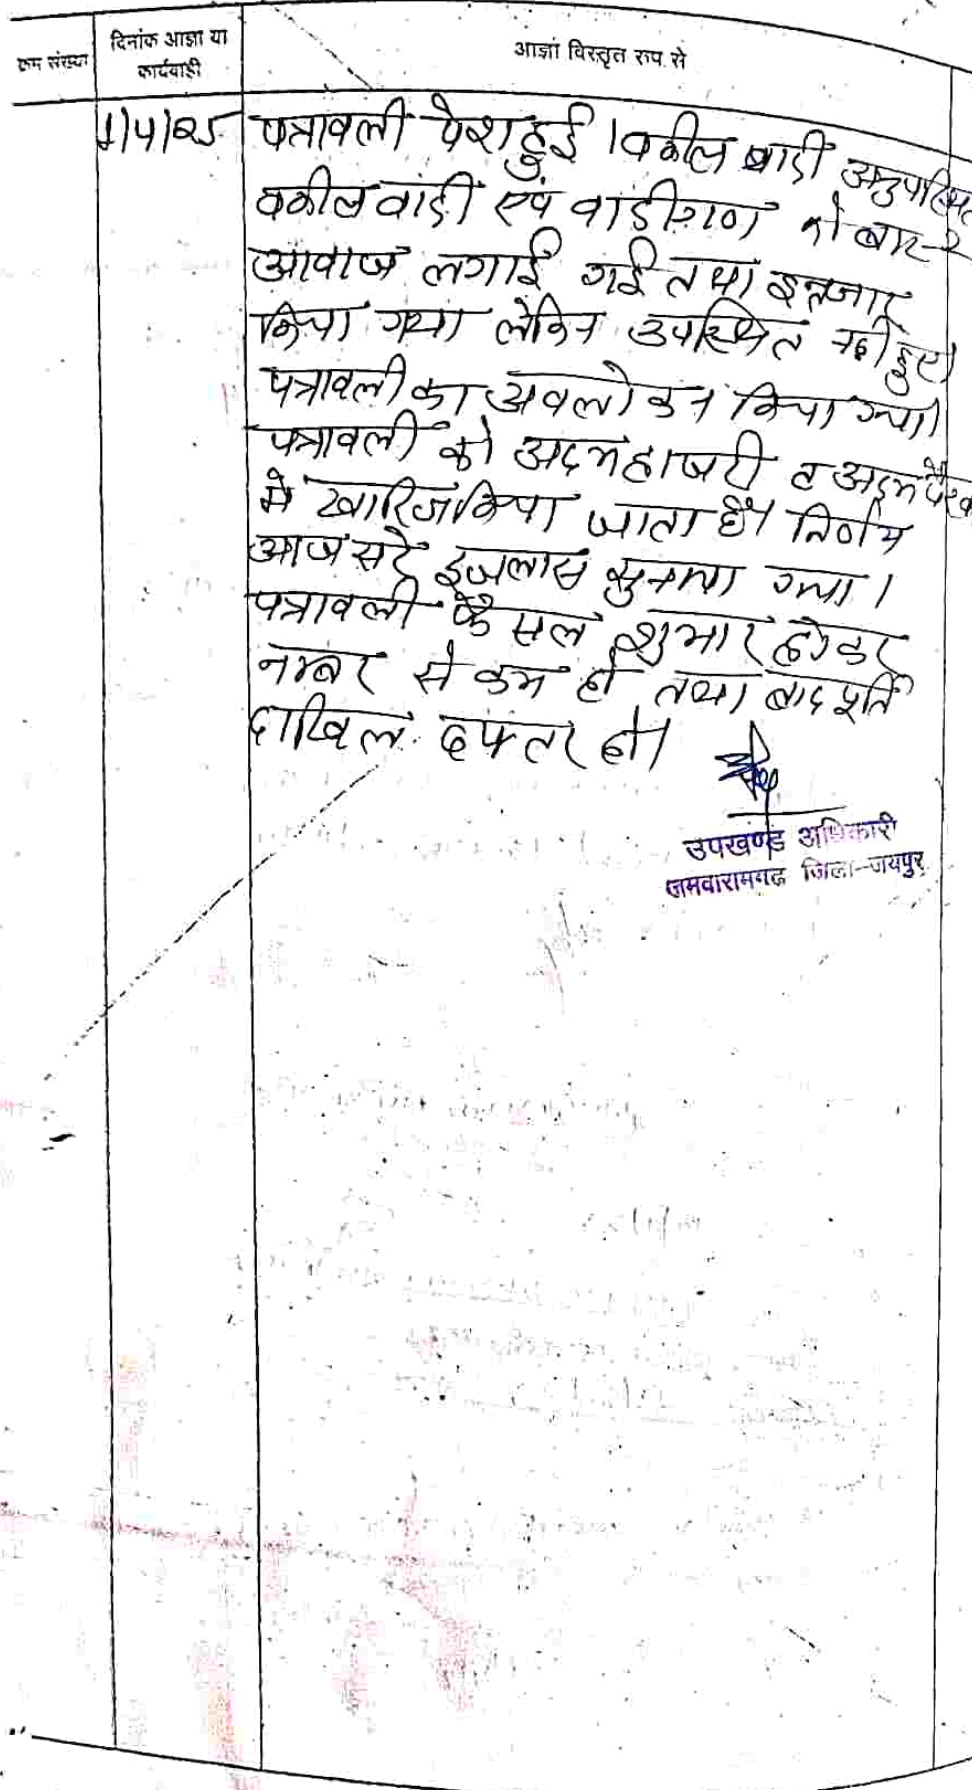 क्रम संख्या
दिनांक आज्ञा या
कार्यवाही
आज्ञा विस्तृत रुप से
1/4/25
पत्रावली पेश हुई । वकील वादी अनुपस्थित
वकील वादी एवं वादीगण को बार-2
आवाज लगाई गई तथा इन्तजार
किया गया लेकिन उपस्थित नही हुए।
पत्रावली का अवलोकन किया गया।
पत्रावली को अदमहाजरी व अदम पैरवी
मे खारिज किया जाता है। निर्णय
आज सरे इजलास सुनाया गया।
पत्रावली फैसल शुमार होकर
नम्बर से कम हो तथा बाद पूर्ति
दाखिल दफ्तर हो।
उपखण्ड अधिकारी
जमवारामगढ जिला-जयपुर